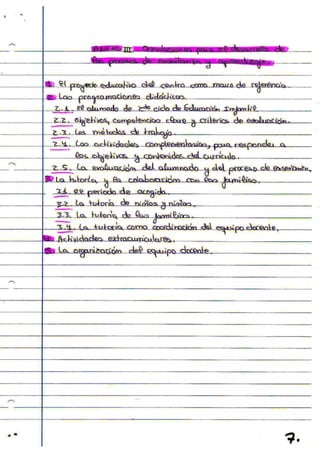 III Condiciones para el desarrollo de
los procesos de enseñanza y aprendizaje.
1. El proyecto educativo del centro como marco de referencia.
2. Las programaciones didácticas.
2.1. El alumnado de 2do ciclo de Educación Infantil.
2.2. Objetivos, competencias clave y criterios de evaluación.
2.3. Los métodos de trabajo.
2.4. Las actividades complementarias, para responder a
los objetivos y contenidos del currículo.
2.5. La evaluación del alumnado y del proceso de enseñanza.
3. La tutoría y la colaboración con las familias.
3.1. El período de acogida.
3.2. La tutoría de niños y niñas.
3.3. La tutoría de las familias.
3.4. La tutoría como coordinación del equipo docente.
4. Actividades extracurriculares.
5. La organización del equipo docente.
7.